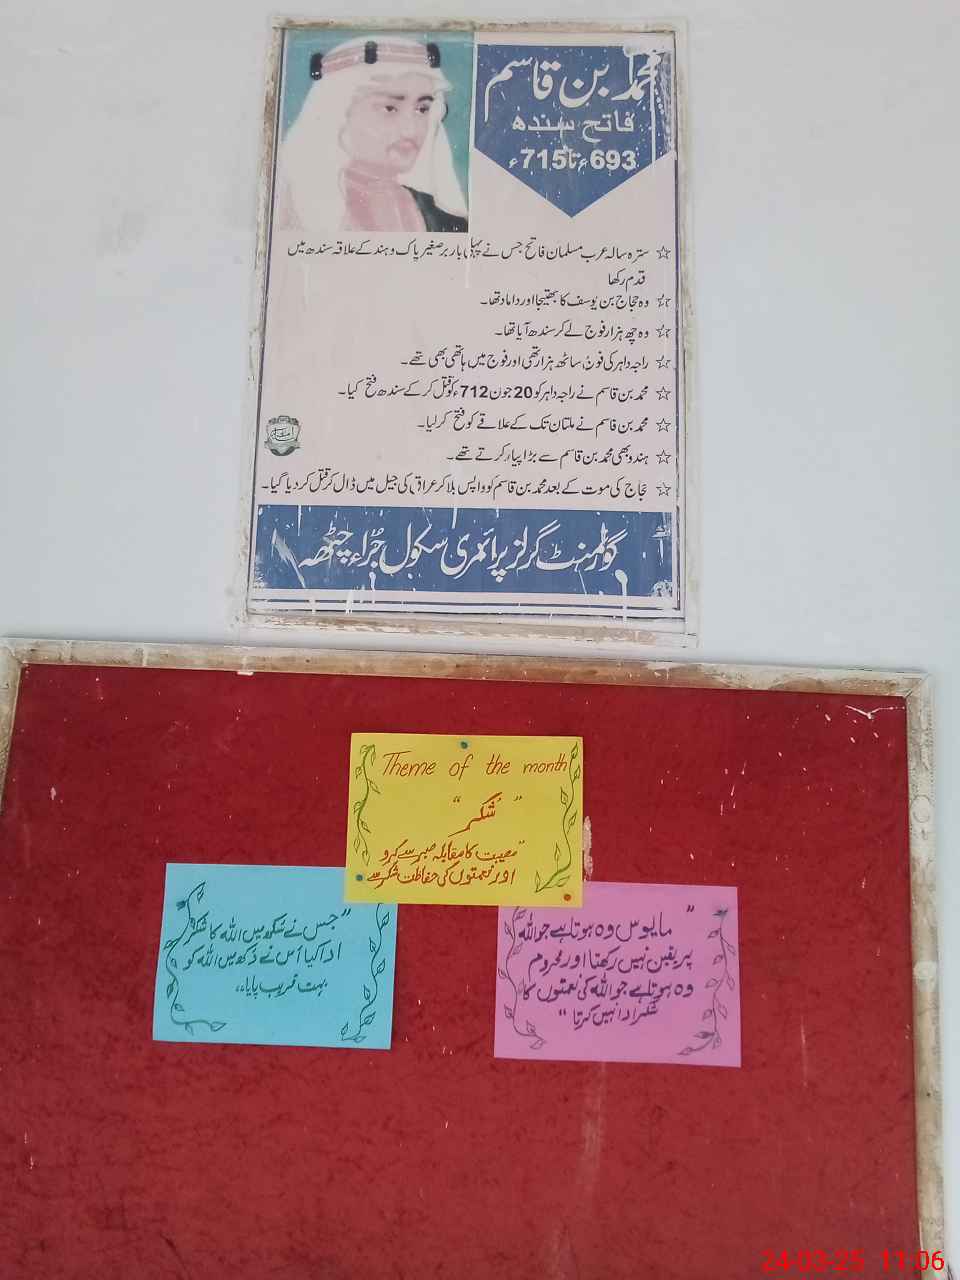 محمد بن قاسم
فاتح سندھ
693ء تا 715ء
☆ سترہ سالہ عرب مسلمان فاتح جس نے پہلی بار برصغیر پاک و ہند کے علاقہ سندھ میں
قدم رکھا
☆ وہ حجاج بن یوسف کا بھتیجا اور داماد تھا۔
☆ وہ چھ ہزار فوج لے کر سندھ آیا تھا۔
☆ راجہ داہر کی فوج ساٹھ ہزار تھی اور فوج میں ہاتھی بھی تھے۔
☆ محمد بن قاسم نے راجہ داہر کو 20 جون 712ء کو قتل کر کے سندھ فتح کیا۔
☆ محمد بن قاسم نے ملتان تک کے علاقے کو فتح کر لیا۔
☆ ہندو بھی محمد بن قاسم سے بڑا پیار کرتے تھے۔
☆ حجاج کی موت کے بعد محمد بن قاسم کو واپس بلا کر عراق کی جیل میں ڈال کر قتل کر دیا گیا۔
گورنمنٹ گرلز پرائمری سکول جُڑاء چٹھہ
Theme of the month
"شُکر"
"مصیبت کا مقابلہ صبر سے کرو
اور نعمتوں کی حفاظت شکر سے
"جس نے سکھ میں اللہ کا شکر
ادا کیا اُس نے دکھ میں اللہ کو
بہت قریب پایا"
"مایوس وہ ہوتا ہے جو اللہ
پر یقین نہیں رکھتا اور محروم
وہ ہوتا ہے جو اللہ کی نعمتوں کا
شکر ادا نہیں کرتا"
24-03-25 11:06